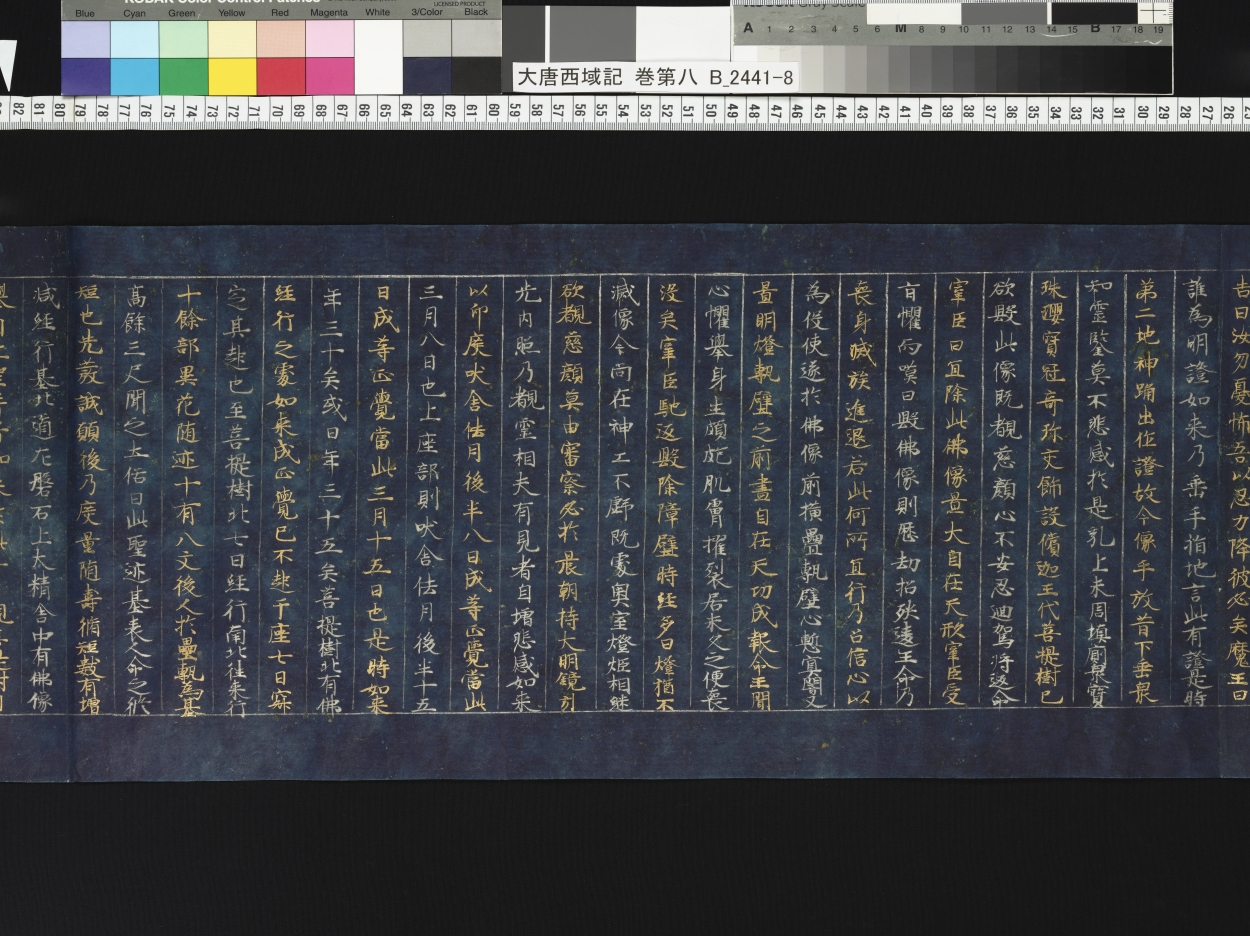 KODAK Color Control Patches
LICENSED PRODUCT
Blue Cyan Green Yellow Red Magenta White 3/Color Black
A 1 2 3 4 5 6 M 8 9 10 11 12 13 14 15 B 17 18 19
大唐西域記 巻第八 B_2441-8
82 81 80 79 78 77 76 75 74 73 72 71 70 69 68 67 66 65 64 63 62 61 60 59 58 57 56 55 54 53 52 51 50 49 48 47 46 45 44 43 42 41 40 39 38 37 36 35 34 33 32 31 30 29 28 27 26
告曰汝勿憂怖吾以忍力降彼必矣魔王曰
誰為明證如来乃垂手指地言此有證是時
第二地神踊出作證故今像手放昔下垂衆
知霊鑒莫不悲感於是乳上未周填廁衆寶
珠瓔寶冠奇珎交飾設償迦王代菩提樹已
欲毀此像既覩慈顔心不安忍迴駕将返命
宰臣曰宜除此佛像置大自在天形宰臣受
㫖懼而嘆曰毀佛像則歴劫招殃違王命乃
喪身滅族進退若此何所宜行乃召信心以
為役使遂於佛像前横壘甎壁心慙冥闇又
置明燈甎壁之前畫自在天功成報命王聞
心懼舉身生皰肌膚攫裂居未久之便喪
没矣宰臣馳返毀除障壁時経多日燈猶不
滅像今尚在神工不虧既處奥室燈炬相継
欲覩慈顔莫由審察必於晨朝持大明鏡引
光内照乃覩霊相夫有見者自増悲感如来
以印度吠舎佉月後半八日成等正覺當此
三月八日也上座部則吠舎佉月後半十五
日成等正覺當此三月十五日也是時如来
年三十矣或曰年三十五矣菩提樹北有佛
経行之處如来成正覺已不起于座七日寂
定其起也至菩提樹北七日経行南北往来行
十餘歩異花随迹十有八文後人於此壘甎為基
髙餘三尺聞之土俗曰此聖迹基表人命之修
短也先發誠願後乃度量随壽脩短數有増
減経行基北道左磐石上大精舎中有佛像